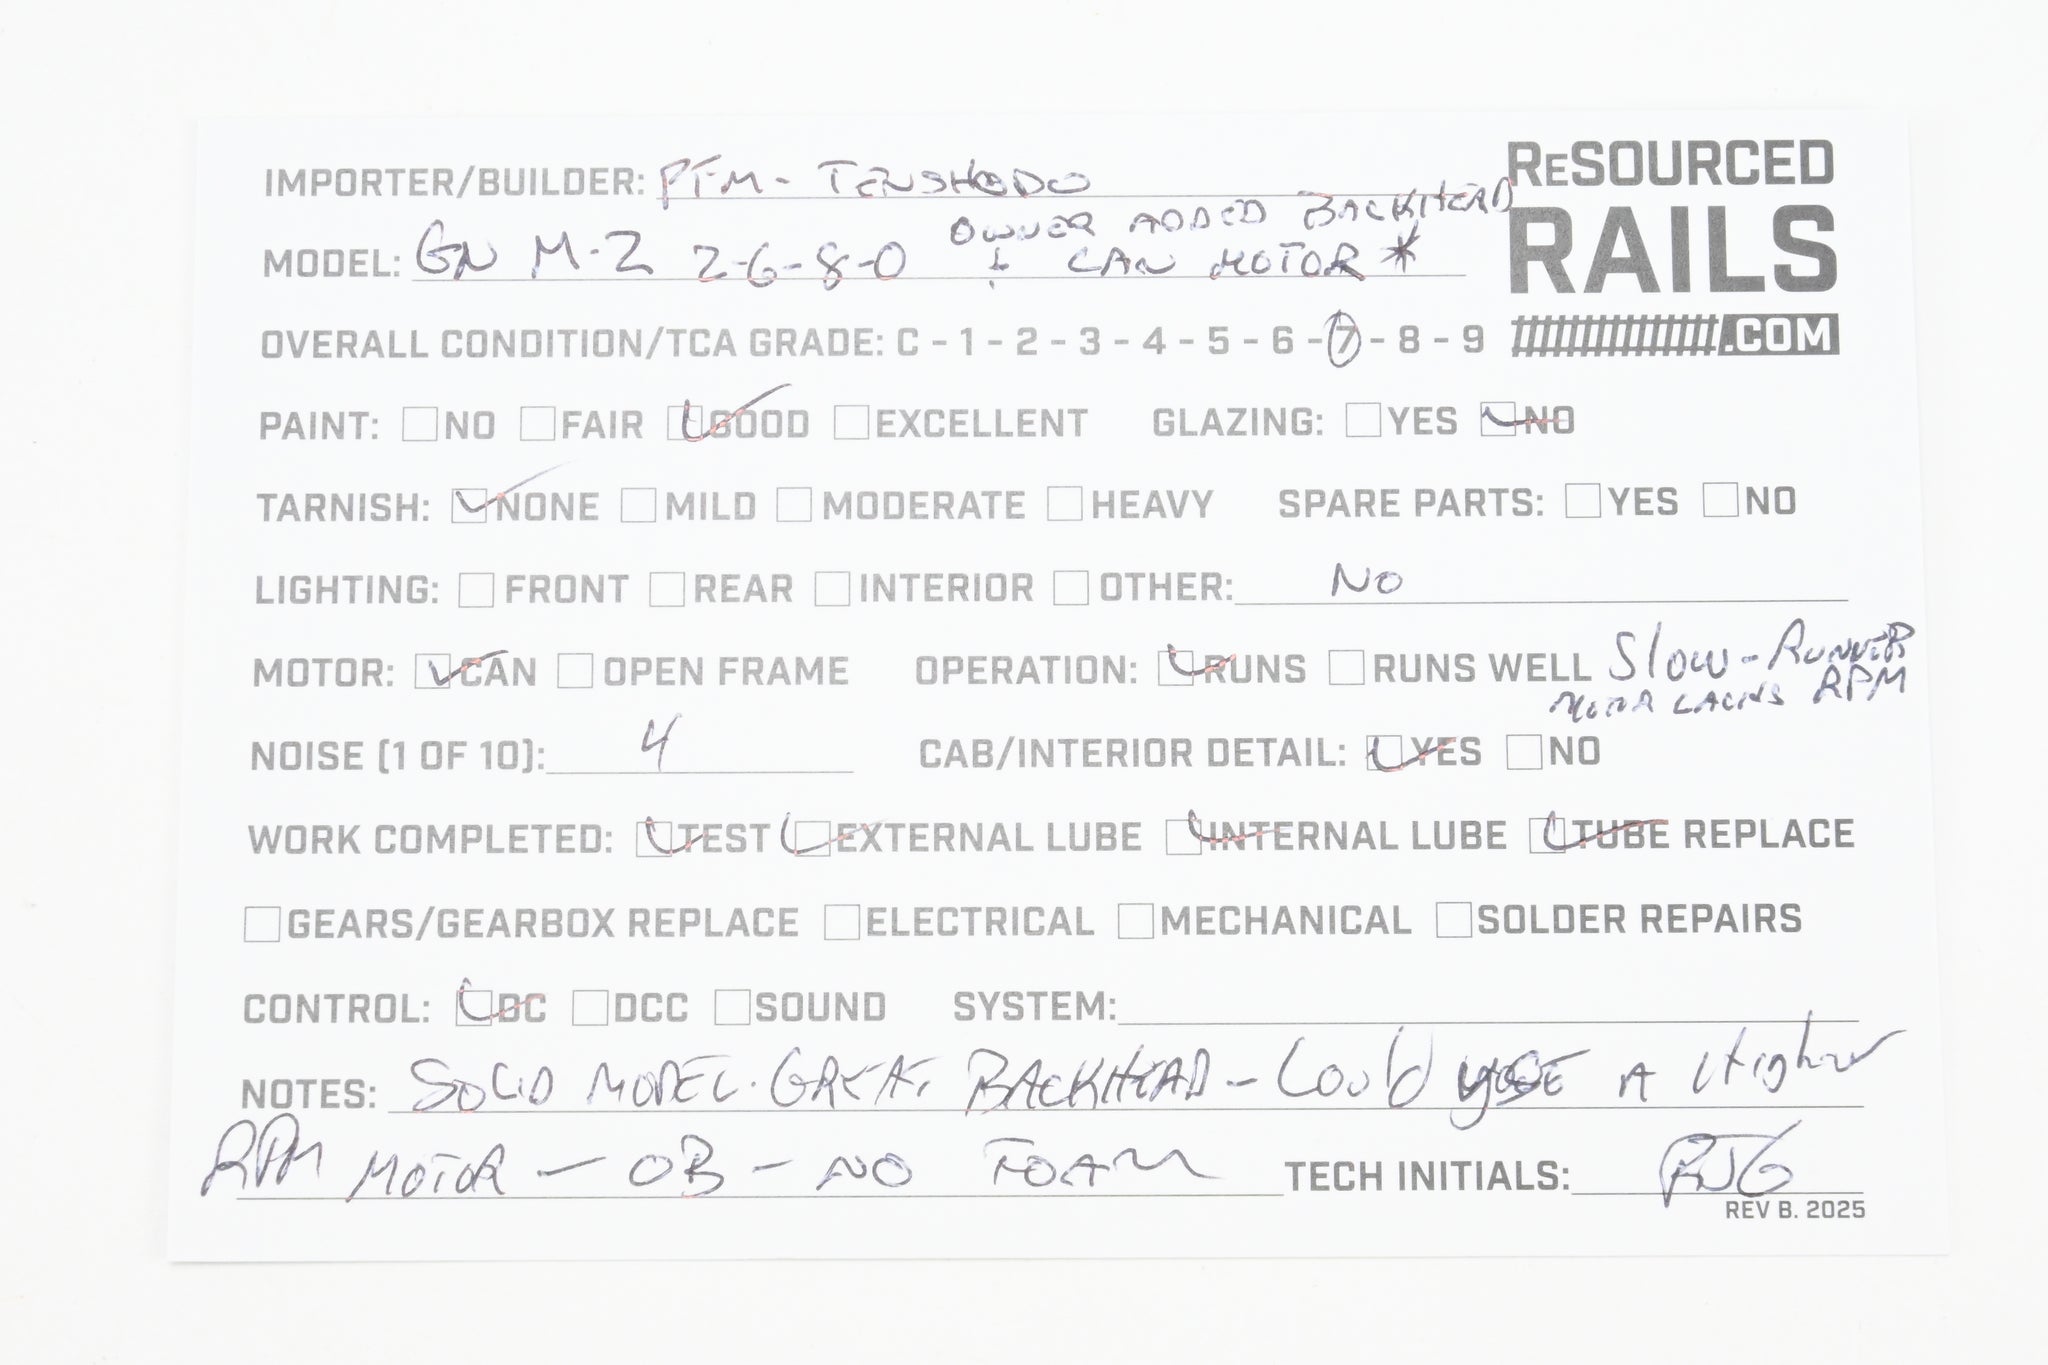 IMPORTER/BUILDER: PFM - TENSHODO
ReSOURCED
RAILS
.COM
OWNER ADDED BACKHEAD
MODEL: GN M-2 2-6-8-0 + CAN MOTOR *
OVERALL CONDITION/TCA GRADE: C - 1 - 2 - 3 - 4 - 5 - 6 - 7 - 8 - 9
PAINT: NO FAIR GOOD EXCELLENT GLAZING: YES NO
TARNISH: NONE MILD MODERATE HEAVY SPARE PARTS: YES NO
LIGHTING: FRONT REAR INTERIOR OTHER: NO
MOTOR: CAN OPEN FRAME OPERATION: RUNS RUNS WELL Slow-RUNNER
MOTOR LACKS RPM
NOISE (1 OF 10): 4 CAB/INTERIOR DETAIL: YES NO
WORK COMPLETED: TEST EXTERNAL LUBE INTERNAL LUBE TUBE REPLACE
GEARS/GEARBOX REPLACE ELECTRICAL MECHANICAL SOLDER REPAIRS
CONTROL: DC DCC SOUND SYSTEM:
NOTES: SOLID MODEL. GREAT BACKHEAD - Could USE A Higher
RPM MOTOR - OB - NO FOAM TECH INITIALS: RJG
REV B. 2025